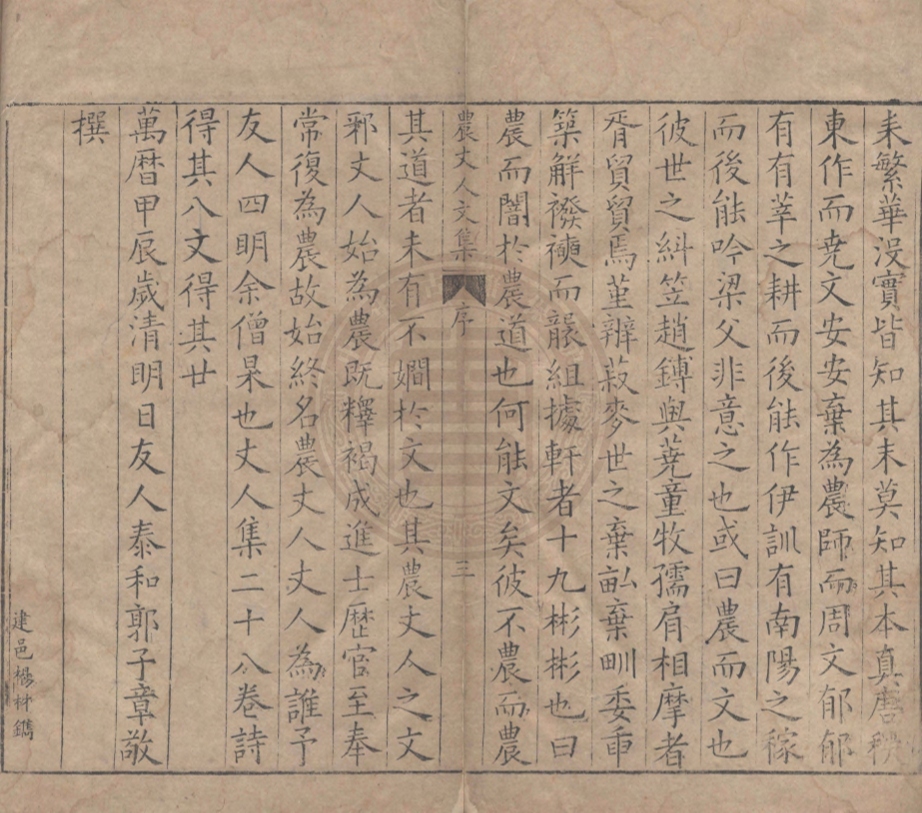 耒繁華沒實皆知其末莫知其本真唐秧
東作而堯文安安棄為農師而周文郁郁
有有莘之耕而後能作伊訓有南陽之稼
而後能吟梁父非意之也或曰農而文也
彼世之糾笠趙鏄與蕘童牧孺肩相摩者
胥貿貿焉堇辨菽麥世之棄畆棄甽委重
築解襏襫而龍組據軒者十九彬彬也曰
農而闇於農道也何能文矣彼不農而農
農丈人文集 序 三
其道者未有不嫺於文也其農丈人之文
邪丈人始為農既釋褐成進士歷官至奉
常復為農故始終名農丈人丈人為誰予
友人四明余僧杲也丈人集二十八卷詩
得其八文得其廿
萬曆甲辰歲清明日友人泰和郭子章敬
撰
建邑楊材鐫